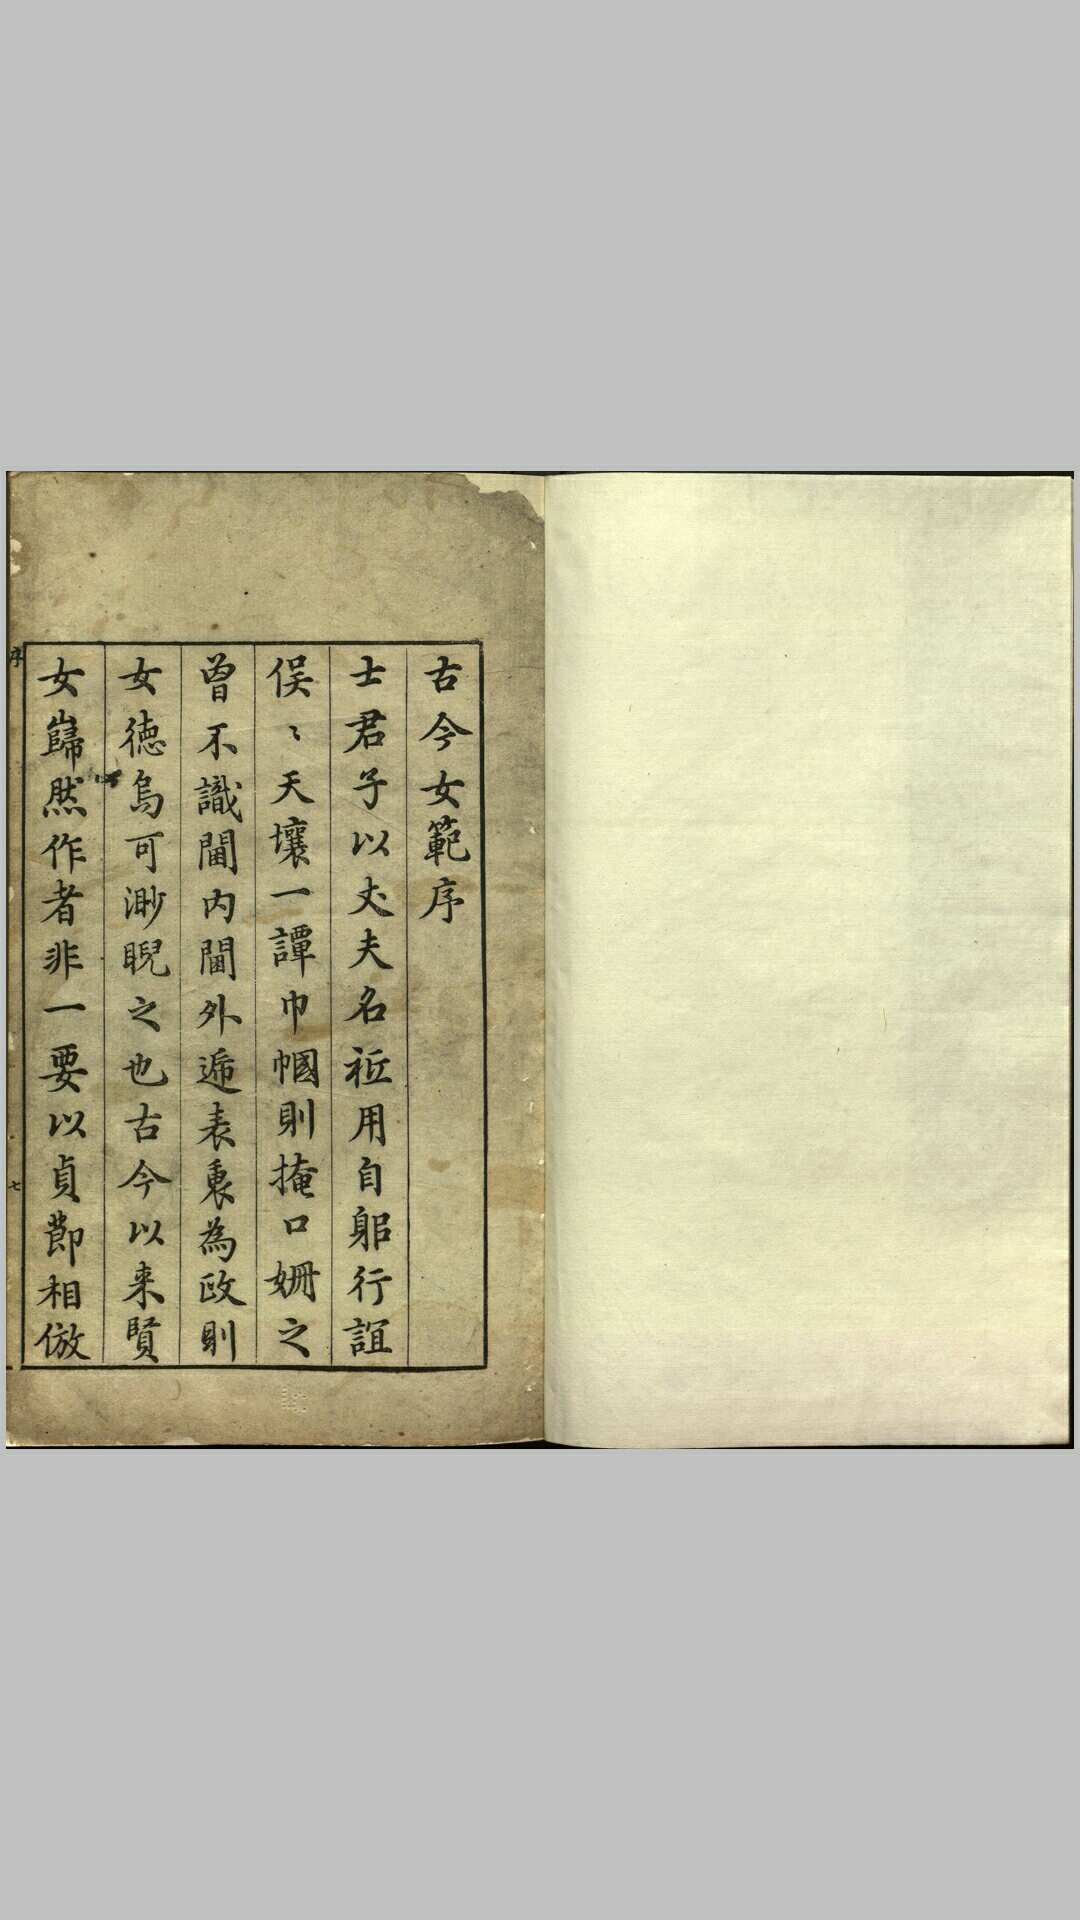 古今女範序
士君子以丈夫名祇用自躬行誼
俁〻天壤一譚巾幗則掩口姍之
曾不識閫内閫外遞表裏為政則
女德烏可渺睨之也古今以来賢
女巋然作者非一要以貞節相倣
序
七